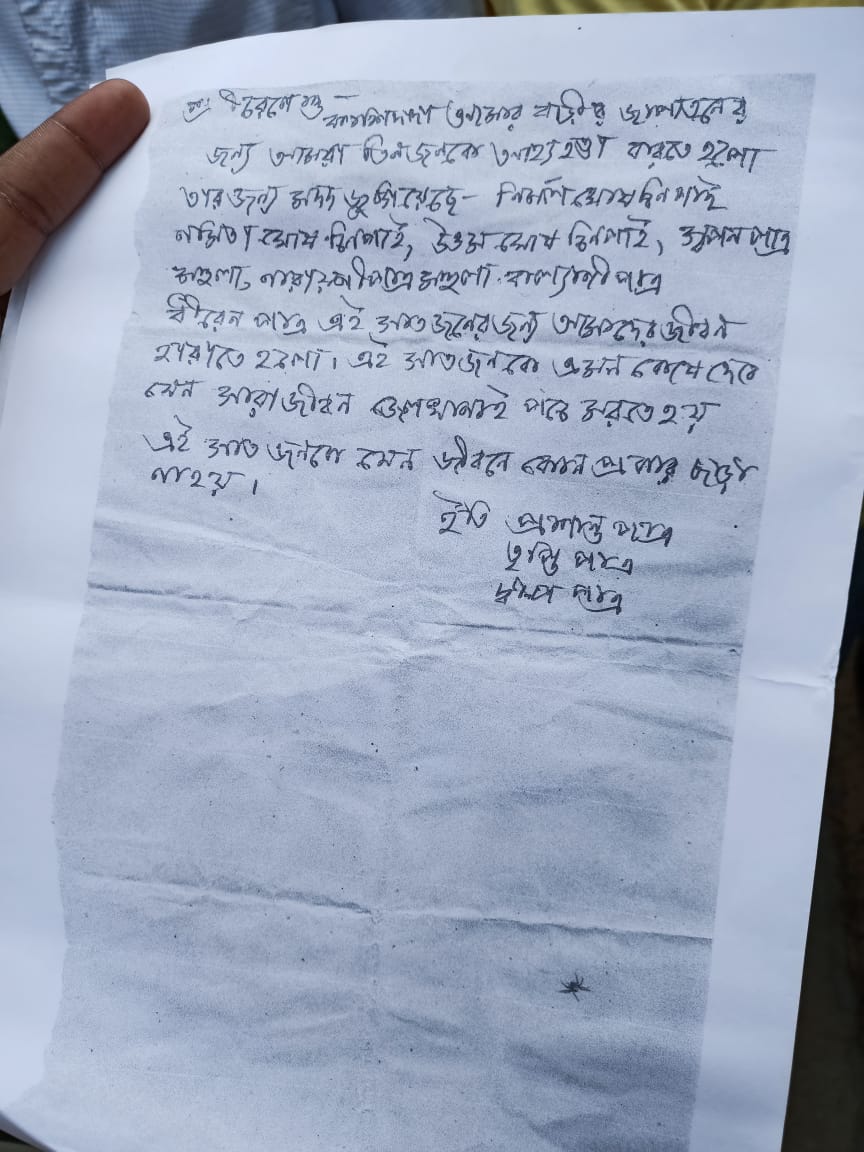 জন্য আমরা তিনজনকে আত্মহত্যা করতে হলো
তার জন্য মদদ জুগিয়েছে- নির্মল ঘোষ দিনপাই
নমিতা ঘোষ দিনপাই, উত্তম ঘোষ দিনপাই, স্বপন পাত্র
মহুলা, নারায়ণী পাত্র মহুলা. কল্যাণী পাত্র
বীরেন পাত্র এই সাত জনের জন্য আমাদের জীবন
হারাতে হলো। এই সাতজনকে এমন কেস দেবে
যেন সারা জীবন জেলখানাই পচে মরতে হয়
এই সাত জনকে যেন জীবনে কোন প্রকার ছাড়া
না হয়।
ইতি প্রশান্ত পাত্র
তৃপ্তি পাত্র
দ্বীপ পাত্র